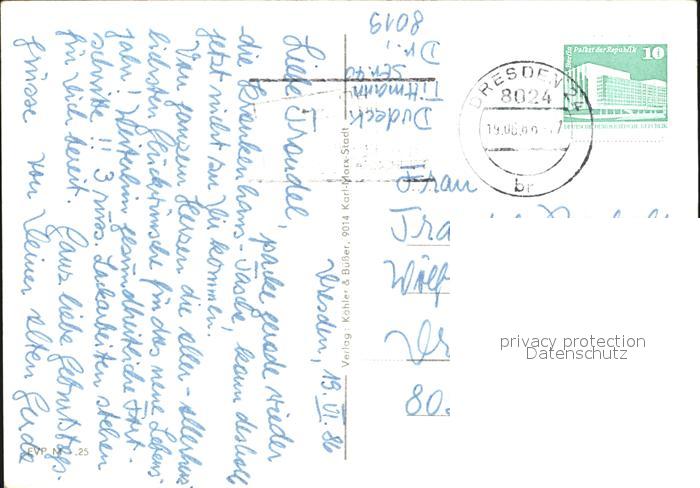 Dresden, 19.VI.86
Liebe Traudel, packe gerade wieder
die Krankenhaus-Tasche, kann deshalb
jetzt nicht zu Dir kommen.
Von ganzem Herzen die aller-allerherz-
lichsten Glückwünsche für das neue Lebens-
jahr! Weiterhin gesundheitliche Fort-
schritte !! 3 russ. Lackarbeiten stehen
für Dich bereit. Ganz liebe Geburtstags-
grüsse von Deiner alten Gerda
EVP M -.25
Verlag: Köhler & Büßer, 9014 Karl-Marx-Stadt
Dudeck
Tittmann
Str. 40
Dr.,
8019
DRESDEN 24
8024
19.06.86
br
Berlin Palast der Republik
10
DEUTSCHE DEMOKRATISCHE REPUBLIK
Frau
Tra
Dr
80.
privacy protection
Datenschutz